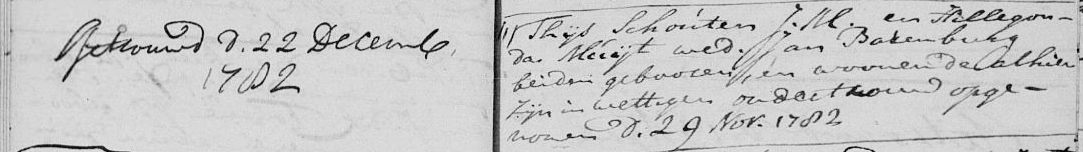 Getrouwd d. 22 Decemb,
1782
Thijs Schouten J. M. en Hillegon-
da Meuijt wed. Jan Barenburg
beiden gebooren, en woonende alhier
zijn in wettigen ondertrouwd opge-
nomen d. 29 Nov. 1782